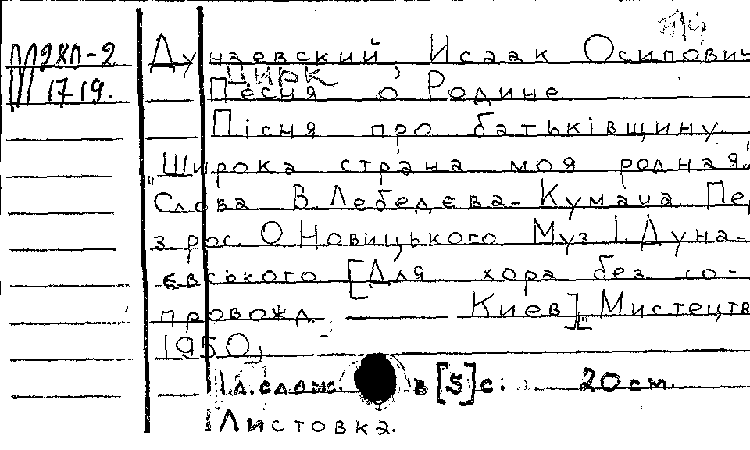 М2хп-2
III 1719.
Дунаевский, Исаак Осипович
Цирк
Песня о Родине
Пісня про батьківщину
"Широка страна моя родная"
Слова В. Лебедєва-Кумача Пе
з рос. О. Новицького Муз І. Дуна-
євського [Для хора без со-
провожд. Киев], Мистецтв
1950,
1 л. слож. в [5] с. 20 см.
Листовка.